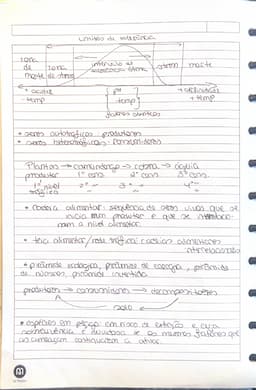 Limites de tolerância
zona de morte
zona de stress
intervalo de tolerância ótimo
stress
morte
- temp
temp
+ temp
fatores abióticos
• seres autotróficos produtores
• seres heterotróficos: consumidores
Plantas → camundongo → cobra → águia
produtor 1º cons 2º cons 3º cons
1º nível trófico 2º " 3º " 4º "
• Cadeia alimentar: sequência de seres vivos que se
inicia num produtor e que se
num a nível alimentar.
• teia alimentar/rede trófica: cadeias alimentares
interligadas
• pirâmide ecológica, pirâmide de energia, pirâmide
de números, pirâmide invertida
produtores → consumidores → decompositores
• espécies em perigo: em risco de extinção e cuja
sobrevivência é se os mesmos fatores que
as ameaçam continuarem a atuar.